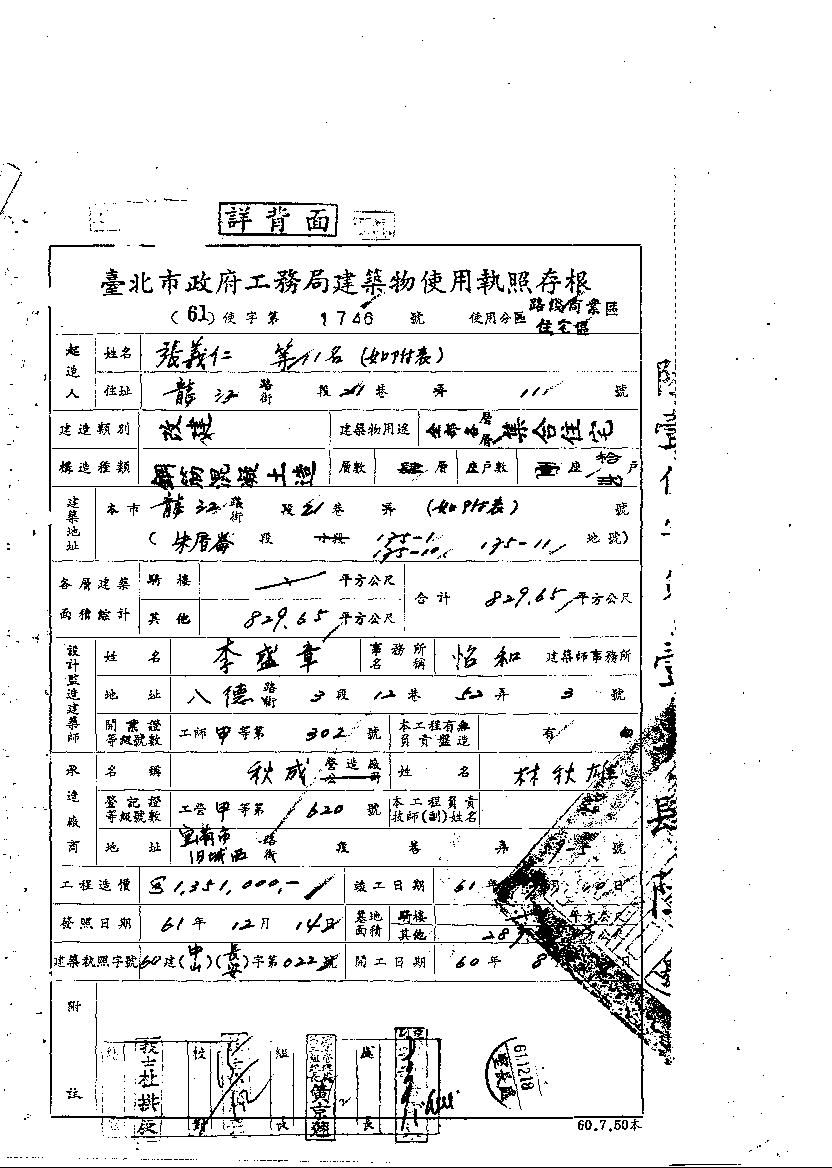 詳背面
臺北市政府工務局建築物使用執照存根
(61)使字第 1746 號 使用分區 路線商業區 住宅區
起造人 姓名 張義仁 等11名(如附表)
住址 龍江 路街 段 21 巷 弄 11 號
建造類別 改建 建築物用途 全部各層 集合住宅
構造種類 鋼筋混凝土造 層數 肆 層 座戶數 壹 座 拾 戶
建築地址 本市 龍江 路街 段 21 巷 弄 (如附表) 號
(朱厝崙 段 小段 175-1 175-10 175-11 地號)
各層建築面積總計 騎樓 平方公尺 合計 829.65 平方公尺
其他 829.65 平方公尺
設計監造建築師 姓名 李盛章 事務所名稱 怡和 建築師事務所
地址 八德 路街 3 段 12 巷 52 弄 3 號
開業證等級號數 工師 甲 等第 302 號 本工程有無負責監造 有
承造廠商 名稱 秋成 營造廠公司 姓名 林秋雄
登記證等級號數 工營 甲 等第 620 號 本工程負責技師(副)姓名
地址 宜蘭市旧城西 路街 段 巷 弄 號
工程造價 1,351,000,- 竣工日期 61 年 日
發照日期 61 年 12 月 14 日 基地面積 騎樓 平方公尺
其他 28
建築執照字號 60 建(中山)(長安)字第 022 號 開工日期 60 年 8
附註
技士杜排
校對
組長
黃京
處長
61.12.18
60.7.50本